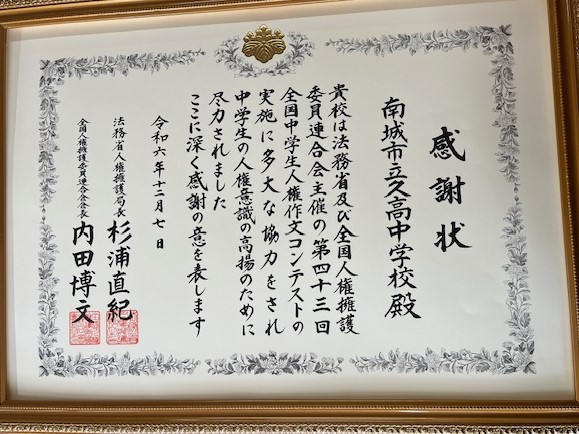 感謝状
南城市立久高中学校殿
貴校は法務省及び全国人権擁護
委員連合会主催の第四十三回
全国中学生人権作文コンテストの
実施に多大な協力をされ
中学生の人権意識の高揚のために
尽力されました
ここに深く感謝の意を表します
令和六年十二月七日
法務省人権擁護局長 杉浦直紀
全国人権擁護委員連合会会長 内田博文